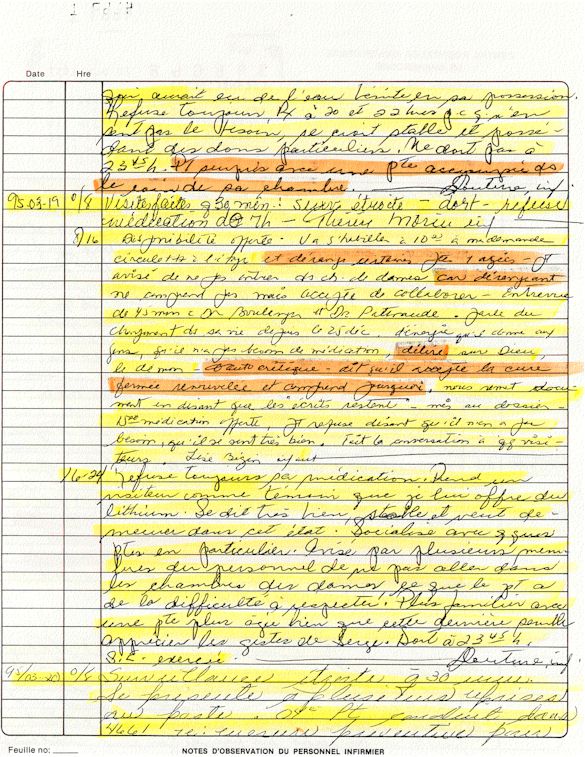 Date Hre
qu'il aurait eu de l'eau bénite en sa possession.
Refuse toujours Rx à 20 et 22 hres p.c.q. n'en
sent pas le besoin, se croit stable et possé-
dant des dons particuliers. Ne dort pas à
23 45 h. et surpris avec une pte accompagnée
de sa chambre. Couture, inf.
95-03-19 0/8 Visites faites q 30 min: suivi étroite - dort - refuse
médication de 7h - Thérèse Morin inf
8/16 Disponibilité offerte. Va s'habiller à 10 à ma demande
circule à l'étage et dérange certains pts âgés - Pt
avisé de ne pas entrer ds ch. de dames car dérangeant
ne comprend pas mais accepte de collaborer - Entrevue
de 45 min c Dr Boulanger et Dr Patenaude. Parle du
changement de sa vie depuis le 25 déc, d'énergie qu'il donne aux
gens, qu'il n'a pas besoin de médication, délire sur Dieu,
le démon. autocritique - dit qu'il accepte la cure
fermée renouvelée et comprend pourquoi, nous remet docu-
ment en disant que les écrits restent - mis au dossier -
médication offerte, pt refuse disant qu'il n'en a pas
besoin, qu'il se sent très bien. Fait la conversation à qq visi-
teurs. Lise inf
16-24 Refuse toujours sa médication. Prend un
visiteur comme témoin que je lui offre du
lithium. Se dit très bien, stable et veut de-
meurer dans cet état. Socialise avec qques
ptes en particulier. Avisé par plusieurs mem-
bres du personnel de ne pas aller dans
les chambres des dames ce que le pt a
de la difficulté à respecter. Plus familier avec
une pte plus âgée bien que cette dernière semble
apprécier les gestes de Serge. Dort à 23 45 h.
S.É. exercée. Couture, inf.
95/03-20 0/8 Surveillance étroite q 30 min.
Se présente à plusieurs reprises
au poste. Pt conduit dans
4661 préventive pour
Feuille no:
NOTES D'OBSERVATION DU PERSONNEL INFIRMIER